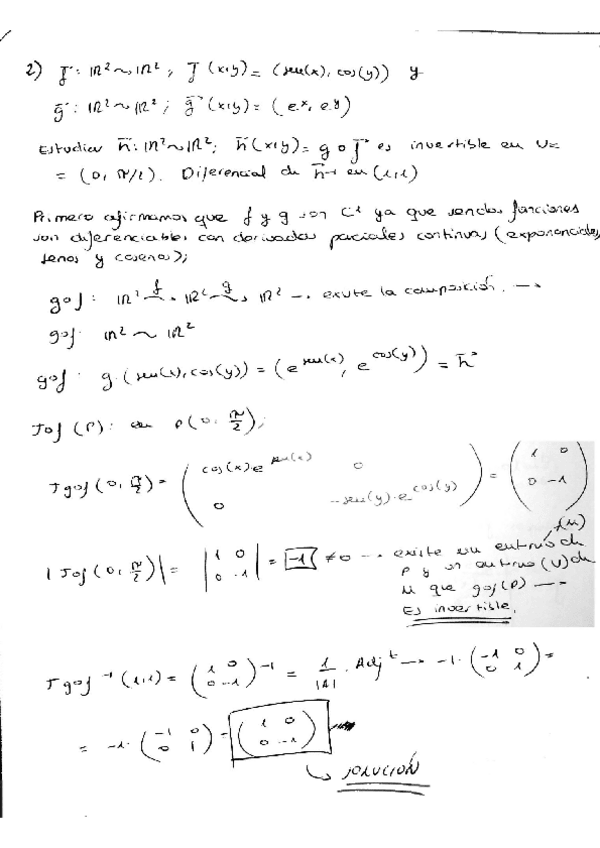 2) f: IR² ~ IR²; f(x,y) = (sen(x), cos(y)) y
g: IR² ~ IR²; g(x,y) = (eˣ, eʸ)
Estudiar h: IR² ~ IR²; h(x,y) = g o f es invertible en U=
= (0, π/2). Diferencial de h⁻¹ en (1,1)
Primero afirmamos que f y g son C¹ ya que sendas funciones
son diferenciables con derivadas parciales continuas (exponenciales,
senos y cosenos);
gof: IR² f→ IR² g→ IR² → existe la composición. →
gof: IR² ~ IR²
gof: g·(sen(x), cos(y)) = (e^sen(x), e^cos(y)) = h
Jof (P): en P(0, π/2);
Jgof (0, π/2) = ( cos(x)·e^sen(x) 0 ; 0 -sen(y)·e^cos(y) ) = ( 1 0 ; 0 -1 )
|Jof (0, π/2)| = | 1 0 ; 0 -1 | = -1 ≠ 0 → existe un entorno de (M)
P y un entorno (U) de
M que gof(P) →
Es invertible.
Jgof⁻¹ (1,1) = ( 1 0 ; 0 -1 )⁻¹ = 1/|A| · Adjᵗ → -1 · ( -1 0 ; 0 1 ) =
= -1 · ( -1 0 ; 0 1 ) = ( 1 0 ; 0 -1 )
↳ SOLUCIÓN